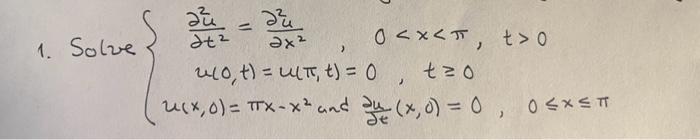 1. Solve { ∂²u/∂t² = ∂²u/∂x² , 0 < x < π, t > 0
u(0,t) = u(π,t) = 0 , t ≥ 0
u(x,0) = πx - x² and ∂u/∂t (x,0) = 0 , 0 ≤ x ≤ π